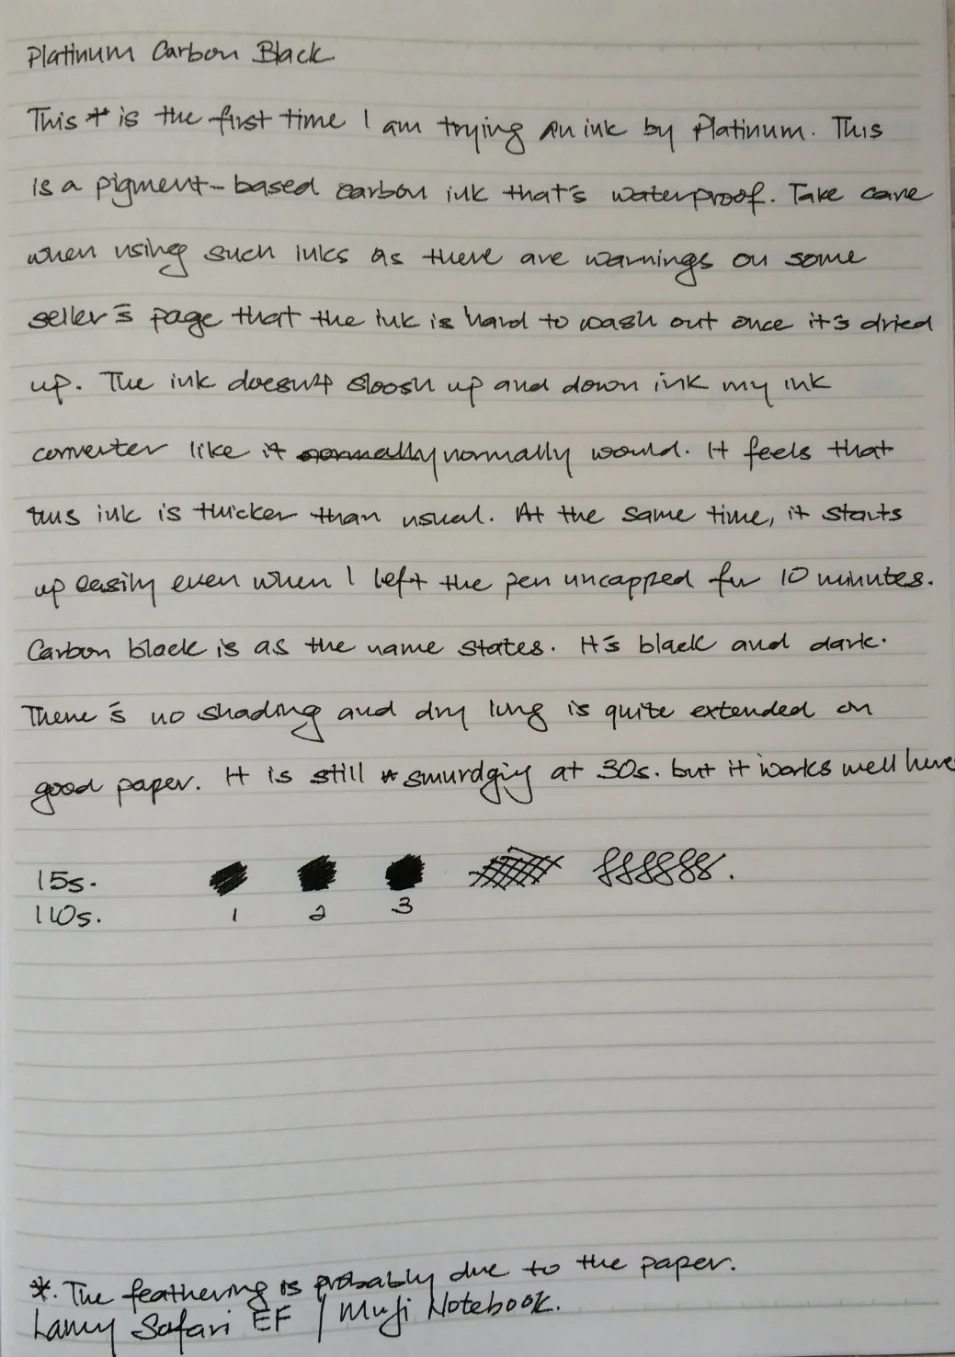 Platinum Carbon Black
This is the first time I am trying an ink by Platinum. This
is a pigment-based carbon ink that's waterproof. Take care
when using such inks as there are warnings on some
seller's page that the ink is hard to wash out once it's dried
up. The ink doesn't sloosh up and down ink my ink
converter like it normally normally would. It feels that
this ink is thicker than usual. At the same time, it starts
up easily even when I left the pen uncapped for 10 minutes.
Carbon black is as the name states. It's black and dark.
There's no shading and dry ling is quite extended on
good paper. It is still smurdgiy at 30s. but it works well here
15s.
110s. 1 2 3
*. The feathering is probably due to the paper.
Lamy Safari EF / Muji Notebook.